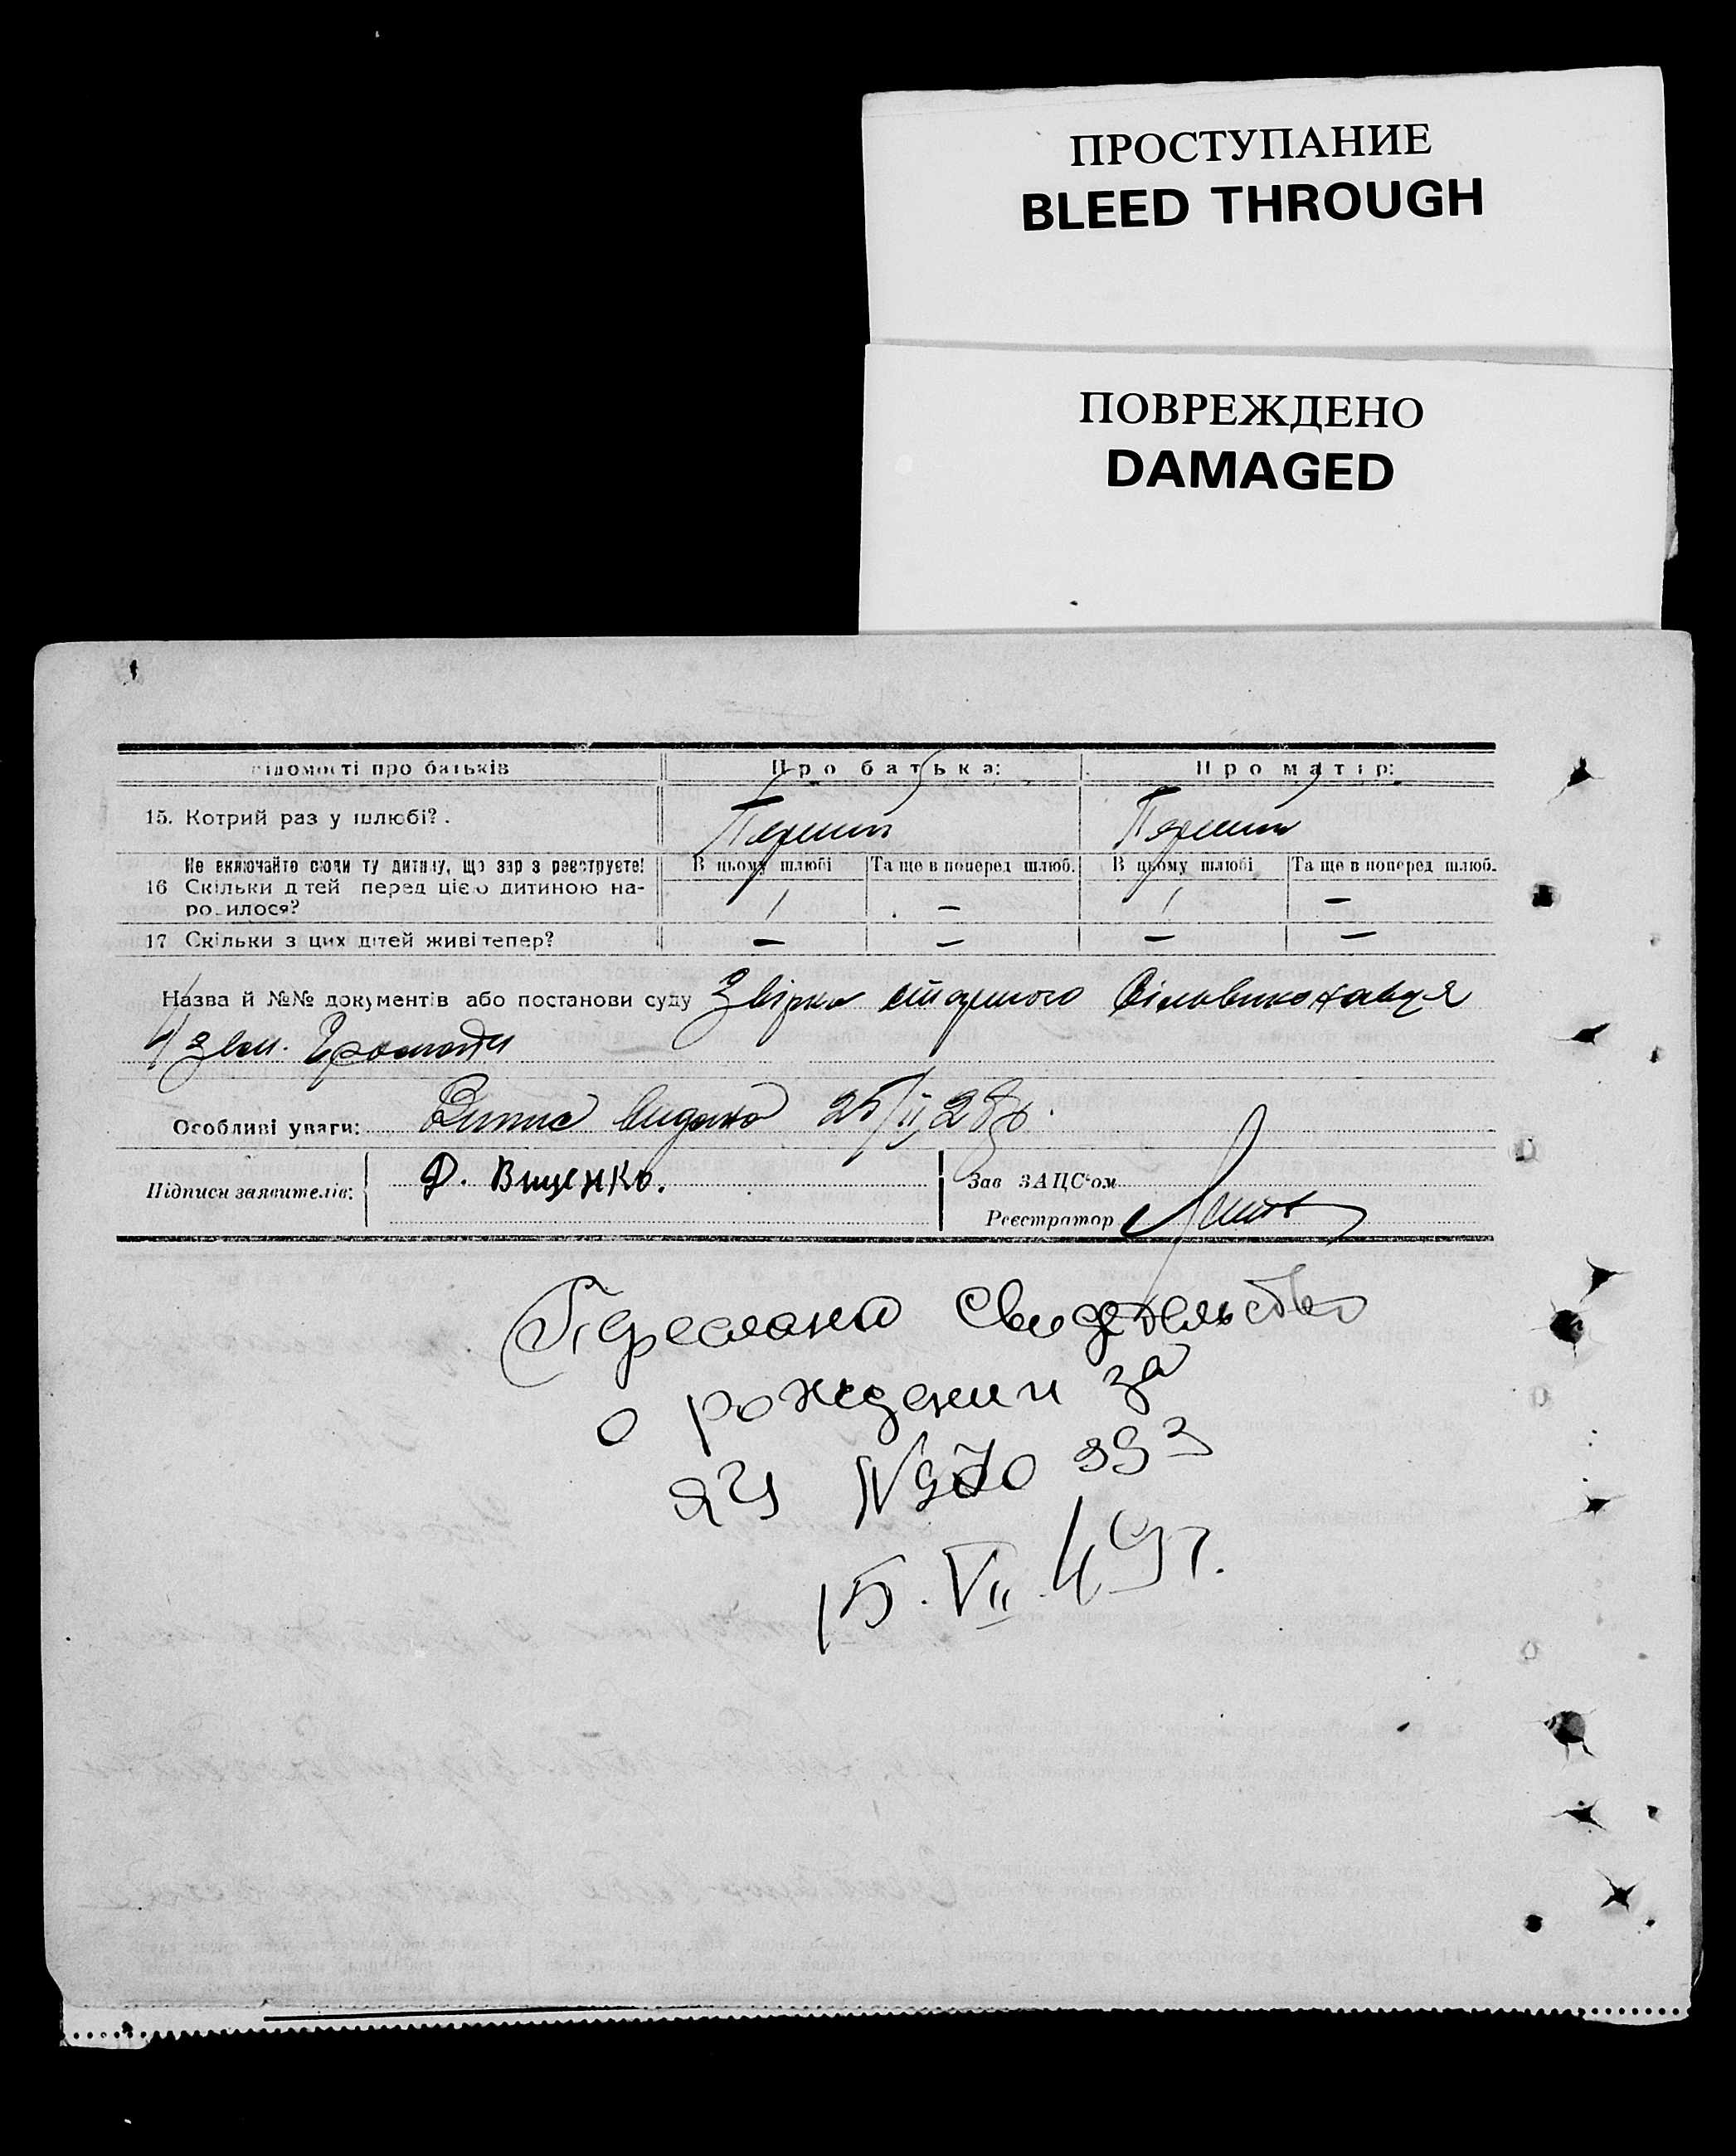 ПРОСТУПАНИЕ
BLEED THROUGH
ПОВРЕЖДЕНО
DAMAGED
відомості про батьків Про батька: Про матір:
15. Котрий раз у шлюбі? . Перший Перший
Не включайте сюди ту дитину, що зар з реєструєте! В цьому шлюбі Та ще в поперед шлюб. В цьому шлюбі Та ще в поперед шлюб.
16 Скільки д тей перед цією дитиною на-
ро илося? 1 — 1 —
17 Скільки з цих дітей живі тепер? — — — —
Назва й №№ документів або постанови суду Звірка старшого Сільвиконавця
4/ зем. Громади
Особливі уваги: Випис видано 25/II 28 р.
Підписи заявителів: Ф. Вищенко. Зав ЗАЦС'ом
Реєстратор
Переслано Свидетельство
о рождении за
ЯЧ №970393
15. VII 49 г.